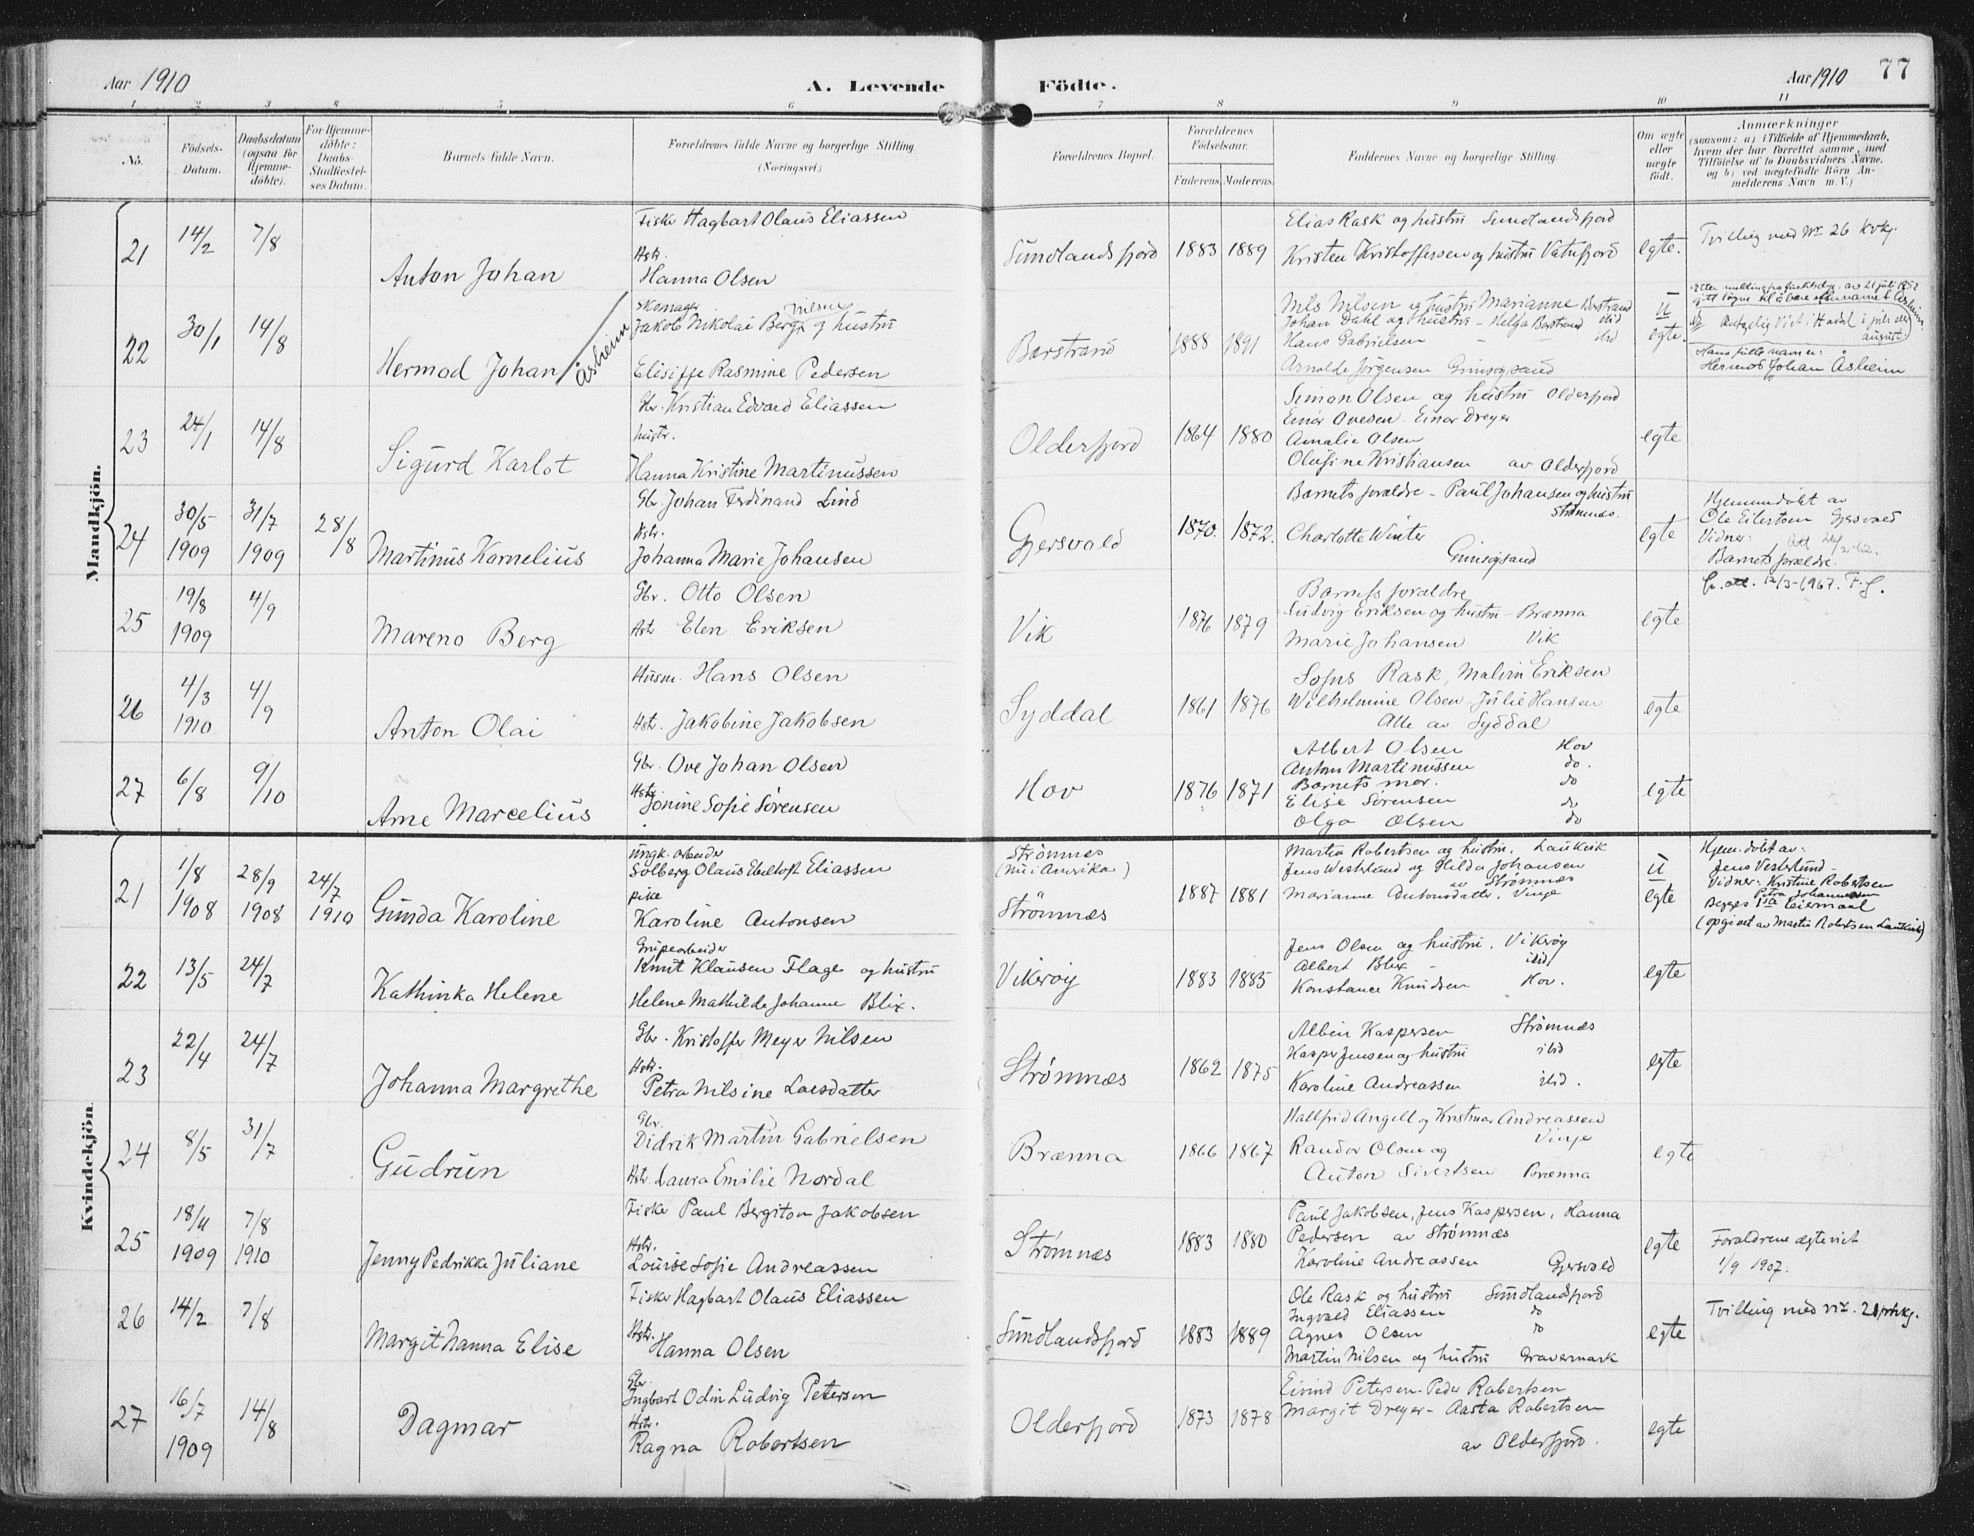 Aar 1910
A. Levende Födte.
Aar 1910
77
1 2 3 4 5 6 7 8 9 10 11
No.
Födsels-Datum.
Daabsdatum (ogsaa for Hjemme-döbte).
For Hjemme-döbte: Daabs-Stadfæstel-ses Datum.
Barnets fulde Navn.
Forældrenes fulde Navne og borgerlige Stilling (Næringsvei.)
Forældrenes Bopæl.
Forældrenes Födselsaar.
Faderens. Moderens.
Faddernes Navne og borgerlige Stilling.
Om ægte eller uægte födt.
Anmærkninger
(saasom: a) i Tilfælde af Hjemmedaab,
hvem der har forrettet samme, med
Tilföielse af to Daabsvidners Navne.
og b) ved uægtefödte Börn An-
melderens Navn m. V.)
Mandkjön.
21 14/2 7/8 Anton Johan
Fisker Hagbart Olaus Eliassen
Hstr.
Hanna Olsen
Sundlandsfjord 1883 1889
Elias Rask og hustru Sundlandsfjord
Kristen Kristoffersen og hustru Vatnfjord
egte.
Tvilling med Nr 26 kvkj.
22 30/1 14/8 Hermod Johan / Åsheim
Skomager Nilsen
Jakob Nikolai Berg og hustru
Elisiffe Rasmine Pedersen
Borstrand 1888 1891
Nils Nilsen og hustru Marianne Borstrand
Johan Dahl og hustru - Helga Borstrand ibid
Hans Gabrielsen - ibid
Arnolde Jørgensen Gimsøysand
u
egte.
august
Hans fulle navn er:
Hermod Johan Åsheim
23 24/1 14/8 Sigurd Karlot
Gbr. Kristian Edvard Eliassen
hustr.
Hanna Kristine Martinussen
Olderfjord 1864 1880
Simon Olsen og hustru Olderfjord
Einar Ovesen - Einar Dreyer
Amalie Olsen
Olufine Kristiansen av Olderfjord
egte
24 30/5 1909 31/7 1909 28/8 Martinus Kornelius
Gbr Johan Ferdinand Lind
Hstr.
Johanna Marie Johansen
Gjersvold 1870. 1872.
Barnets forældre - Paul Johansen og hustru
Strømnæs.
Charlotte Winter
Gimsøysand
egte
Hjemmedøbt av
Ole Eilertsen Gjersvold
Vidner:
Barnets forældre.
25 19/8 1909 4/9 Mareno Berg
Gbr. Otto Olsen
Hstr Elen Eriksen
Vik 1876 1879
Barnets forældre
Ludvig Eriksen og hustru - Brænna
Marie Johansen Vik
egte
fr. att. 12/3-1967. F.G.
26 4/3 1910 4/9 Anton Olai
Husm. Hans Olsen
Hstr. Jakobine Jakobsen
Syddal 1861 1876
Sofus Rask, Malin Eriksen
Wilhelmine Olsen Julie Hansen
Alle av Syddal
egte
27 6/8 9/10 Arne Marcelius
Gbr. Ove Johan Olsen
Hstr
Jonine Sofie Sørensen
Hov 1876 1871
Albert Olsen Hov
Anton Martinussen do.
Barnets mor. do
Elise Sørensen do
Olga Olsen do
egte
Kvindekjön.
21 1/8 1908 28/9 1908 24/7 1910 Gunda Karoline
Ungk. arbeider
Solberg Olaus Ebeltoft Eliassen
pike
Karoline Antonsen
Strømnæs
(nu i Amerika)
Strømnæs 1887 1881
Martin Robertsen og hustru. Laukvik
Jens Westlund og Hilda Johansen
av Strømnæs
Marianne Antonsdatter. Vinje
u
egte
Hjem. døbt av:
Jens Vesterlund -
Vidner: Kristine Robertsen
Petra Johannessen
Begges 1ste Leiermaal
(opgivet av Martin Robertsen Laukvik)
22 13/5 24/7 Kathinka Helene
Grupearbeider
Knut Klausen Flage og hustru
Helene Mathilde Johanne Blix.
Vikerøy 1883 1885
Jens Olsen og hustru. Vikerøy
Albert Blix - ibid
Konstance Knudsen Hov.
egte
23 22/4 24/7 Johanna Margrethe
Gbr. Kristoffer Meyer Nilsen
Hstr.
Petra Nilsine Larsdatter
Strømnæs 1862 1875
Albin Kaspersen Strømnæs
Kasper Jensen og hustru ibid
Karoline Andreassen ibid.
egte
24 8/5 31/7 Gudrun
Gbr.
Didrik Martin Gabrielsen
Hstr. Laura Emilie Nordal
Brænna 1866 1867
Hallfrid Angell og Kristmar Andreassen
Vinje
Randor Olsen og
Anton Sivertsen Brænna
egte
25 18/11 1909 7/8 1910 Jenny Pedrikke Juliane
Fisker Paul Bergiton Jakobsen
Hstr.
Louise Sofie Andreassen
Strømnæs 1883 1880
Paul Jakobsen, Jens Kaspersen, Hanna
Pedersen av Strømnæs
Karoline Andreassen Gjersvold
egte
Forældrene ægteviet
1/9 1907.
26 14/2 7/8 Margit Nanna Elise
Fisker Hagbart Olaus Eliassen
Hstr.
Hanna Olsen
Sundlandsfjord 1883 1889
Ole Rask og hustru Sundlandsfjord
Ingvald Eliassen do
Agnes Olsen do
Martin Nilsen og hustru Gravermark
egte
Tvilling med nr. 21 mkj.
27 16/7 1909 14/8 Dagmar
Gbr.
Ingbart Odin Ludvig Petersen
Hstr.
Ragna Robertsen
Olderfjord 1873 1878
Eivind Petersen - Peder Robertsen
Margit Dreyer - Aasta Robertsen
av Olderfjord.
egte